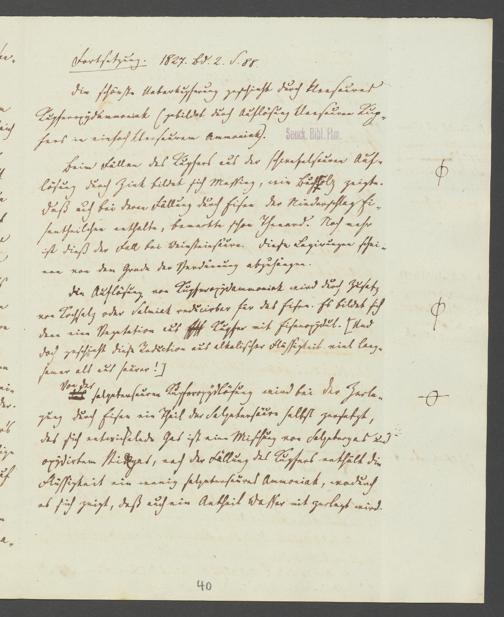 Fortsetzung. 1827. Bd. 2. S. 88.
Die schönste Ueberkupferung geschieht durch kleesaures
Kupferoxydammoniak (gebildet durch Auflösung kleesauren Kup-
fers in einfach kleesaurem Ammoniak).
Senck. Bibl. Ffm.
Beim Fällen des Kupfers aus der schwefelsauren Auf-
lösung durch Zink bildet sich Messing, wie Bucholz zeigte.
Daß auch bei dem Fällung durch Eisen der Niederschlag Ei-
sentheilchen enthalte, bemerkte schon Thenard. Noch mehr
ist dieß der Fall bei Weinsteinsäure. Diese Legirungen schei-
nen von dem Grade der Verdünnung abzuhängen.
Die Auflösung von Kupferoxydammoniak wird durch Zusatz
von Kochsalz oder Salmiak reducirbar für das Eisen. Es bildet sich
dann eine Vegetation aus Kupfer mit Eisenoxydul. [Und
doch geschieht diese Reduction aus alkalischer Flüssigkeit viel lang-
samer als aus saurer!]
Von der
salpetersauren Kupferoxydlösung wird bei der Zerle-
gung durch Eisen ein Theil der Salpetersäure selbst zersetzt,
das sich entwickelnde Gas ist eine Mischung von Salpetergas und
oxydirtem Stickgas, nach der Fällung des Kupfers enthält die
Flüssigkeit ein wenig salpetersaures Ammoniak, wodurch
es sich zeigt, daß auch ein Antheil Wasser mit zerlegt wird.
40